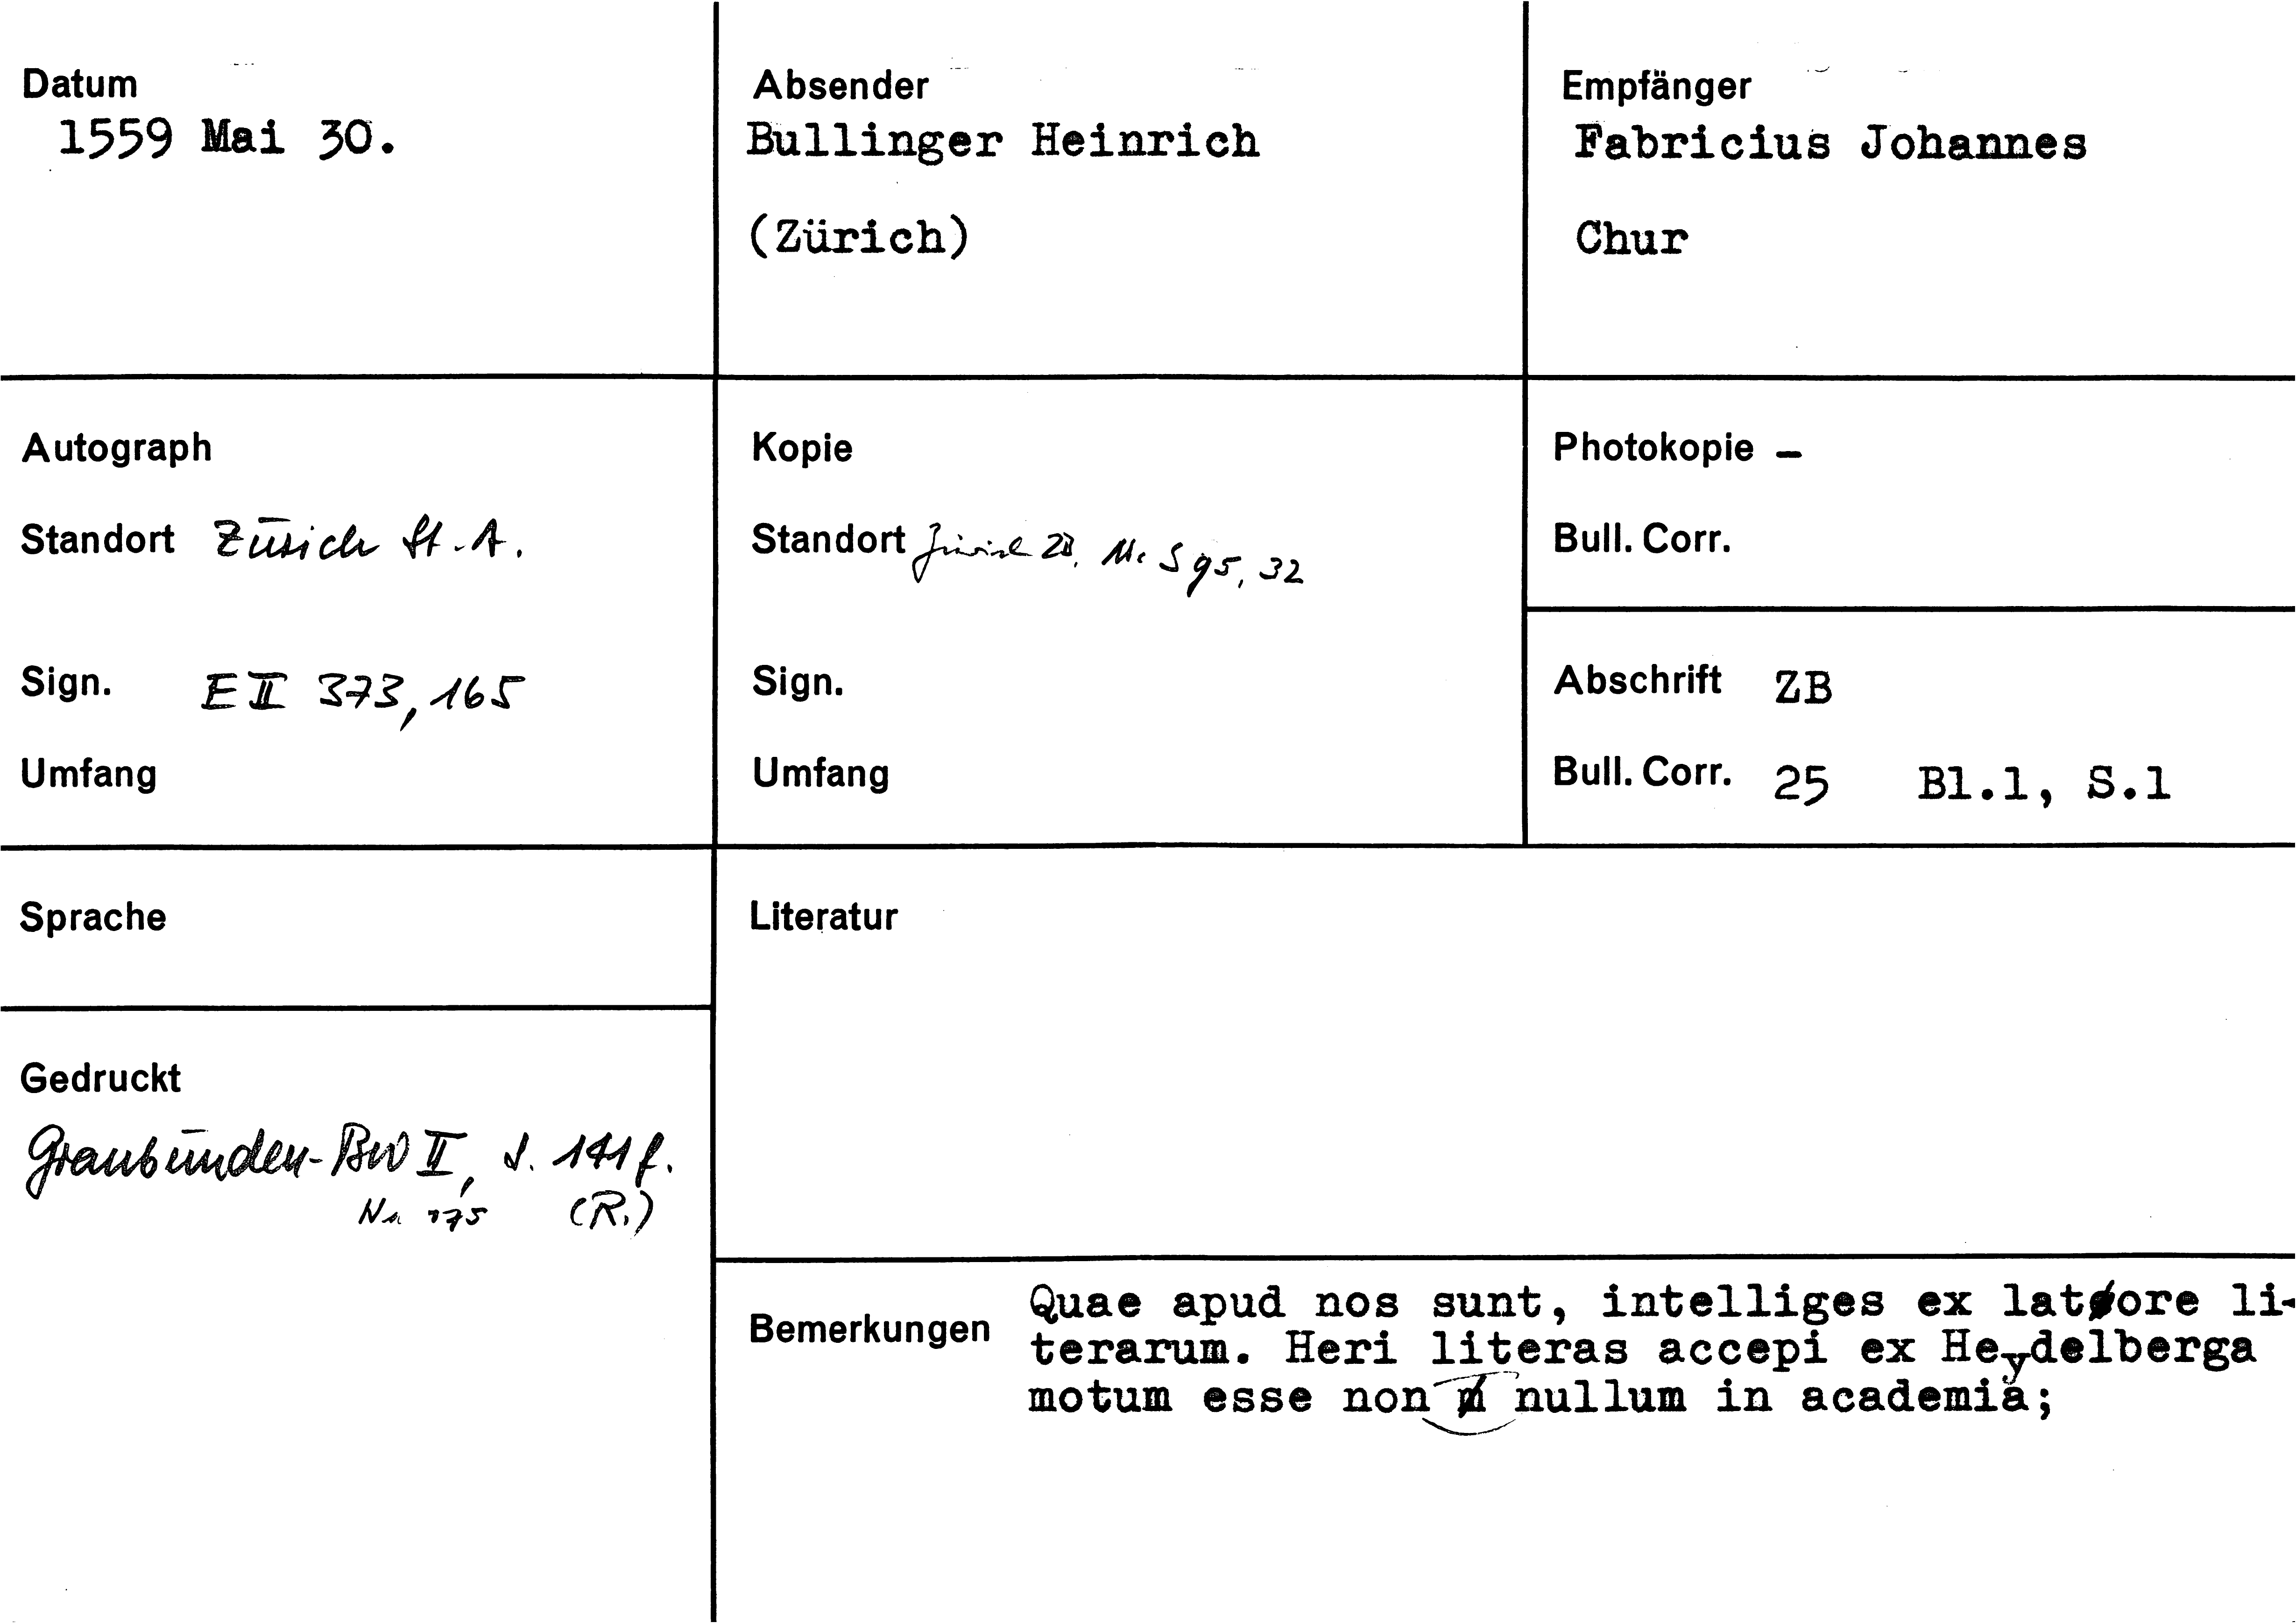 Datum
1559 Mai 30.
Absender
Bullinger Heinrich
(Zürich)
Empfänger
Fabricius Johannes
Chur
Autograph
Standort Zürich St.A.
Sign. E II 373, 165
Umfang
Kopie
Standort Zürich ZB, Ms S 95, 32
Sign.
Umfang
Photokopie –
Bull. Corr.
Abschrift ZB
Bull. Corr. 25 Bl.1, S.1
Sprache
Gedruckt
Graubünden-BW II, S. 141 f.
Nr 175 (R.)
Literatur
Bemerkungen
Quae apud nos sunt, intelliges ex latore li-
terarum. Heri literas accepi ex Heydelberga
motum esse non nullum in academia;